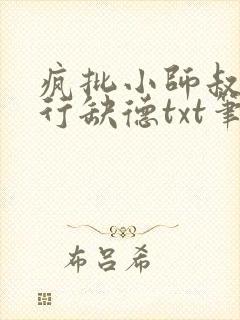 疯批小师叔
行缺德txt笔
布吕希